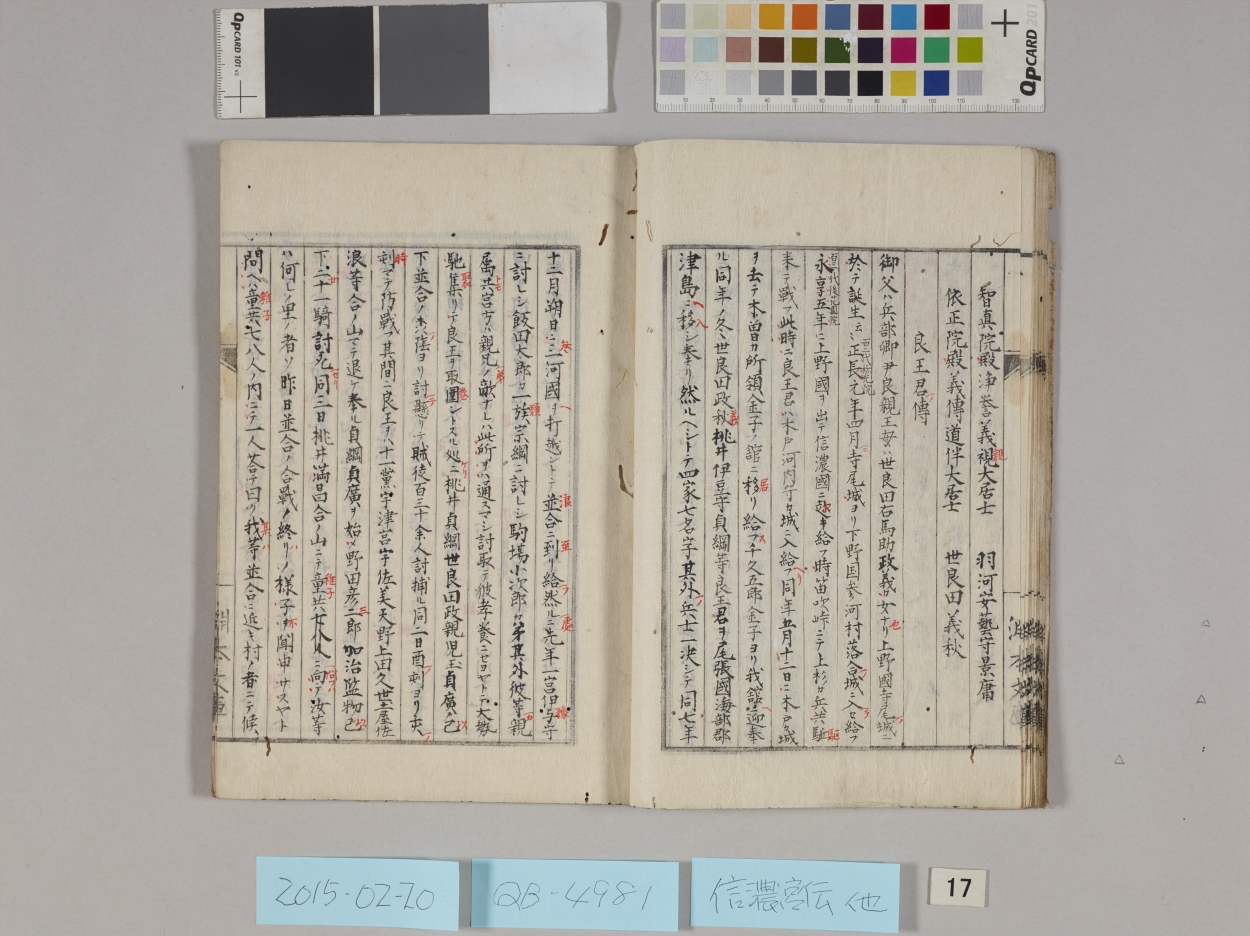 智真院殿浄誉義視大居士　羽河安藝守景庸
依正院殿義傳道伴大居士　世良田義秋
良王君傳
御父ハ兵部卿尹良親王母ハ世良田右馬助政義ガ女ナリ上野國寺尾城ニ
於テ誕生 正長元年四月寺尾城ヨリ下野国 河村落合城ニ入セ給フ
永享五年ニ上野國ヲ出テ信濃國ニ赴キ給フ時笛吹峠ニテ上杉ガ兵共馳
来テ戰フ此時ニ良王君ハ木戸河内守ガ城ニ入給フ同年五月十二日ニ木戸ガ城
ヲ去テ木曽ガ所領金子ノ舘ニ移リ給フ千久五郎金子ヨリ我舘ニ迎奉
ル同年ノ冬世良田政秋桃井伊豆守貞綱等良王君ヲ尾張國海部郡
津島ニ移シ奉リ然ルヘシトテ四家七名字其外兵士一决シテ同七年
十二月朔日ニ三河國ヲ打越シトテ並合ニ到リ給然ルニ先年一宮伊与守
ニ討レシ飯田太郎ガ一族宗綱ニ討レシ駒場小次郎ガ弟其外彼等親
属共宮方ハ親兄ノ敵ナレハ此所ヲハ通スマシ討取テ彼孝養ニセヨヤトテ大勢
馳集リテ良王ヲ取圍ントスル処ニ桃井貞綱世良田政親児玉貞廣ハ己
下並合ノ 陰ヨリ討懸リテ賊徒百三十余人討捕ル同二日酉刻ヨリ
刻マテ防戰フ其間ニ良王ヲハ十一黨宇津宮宇佐美天野上田久世土屋佐
浪等合ノ山マテ退ケ奉ル貞綱貞廣ヲ始メ野田彦二郎加治監物已
下二十一騎討死同三日桃井満昌合ノ山ニテ童共女人ニ向テ汝等
ハ何レノ里ノ者ソ昨日並合ノ合戰ノ終リノ様子ヲ聞申サスヤト
問ヘハ童共七八人ノ内ニテ一人荅テ曰ク我等並合ニ近キ村ノ者ニテ候
QPCARD 101
QPCARD 201
2015-02-20
QB-4981
信濃宮伝 他
17